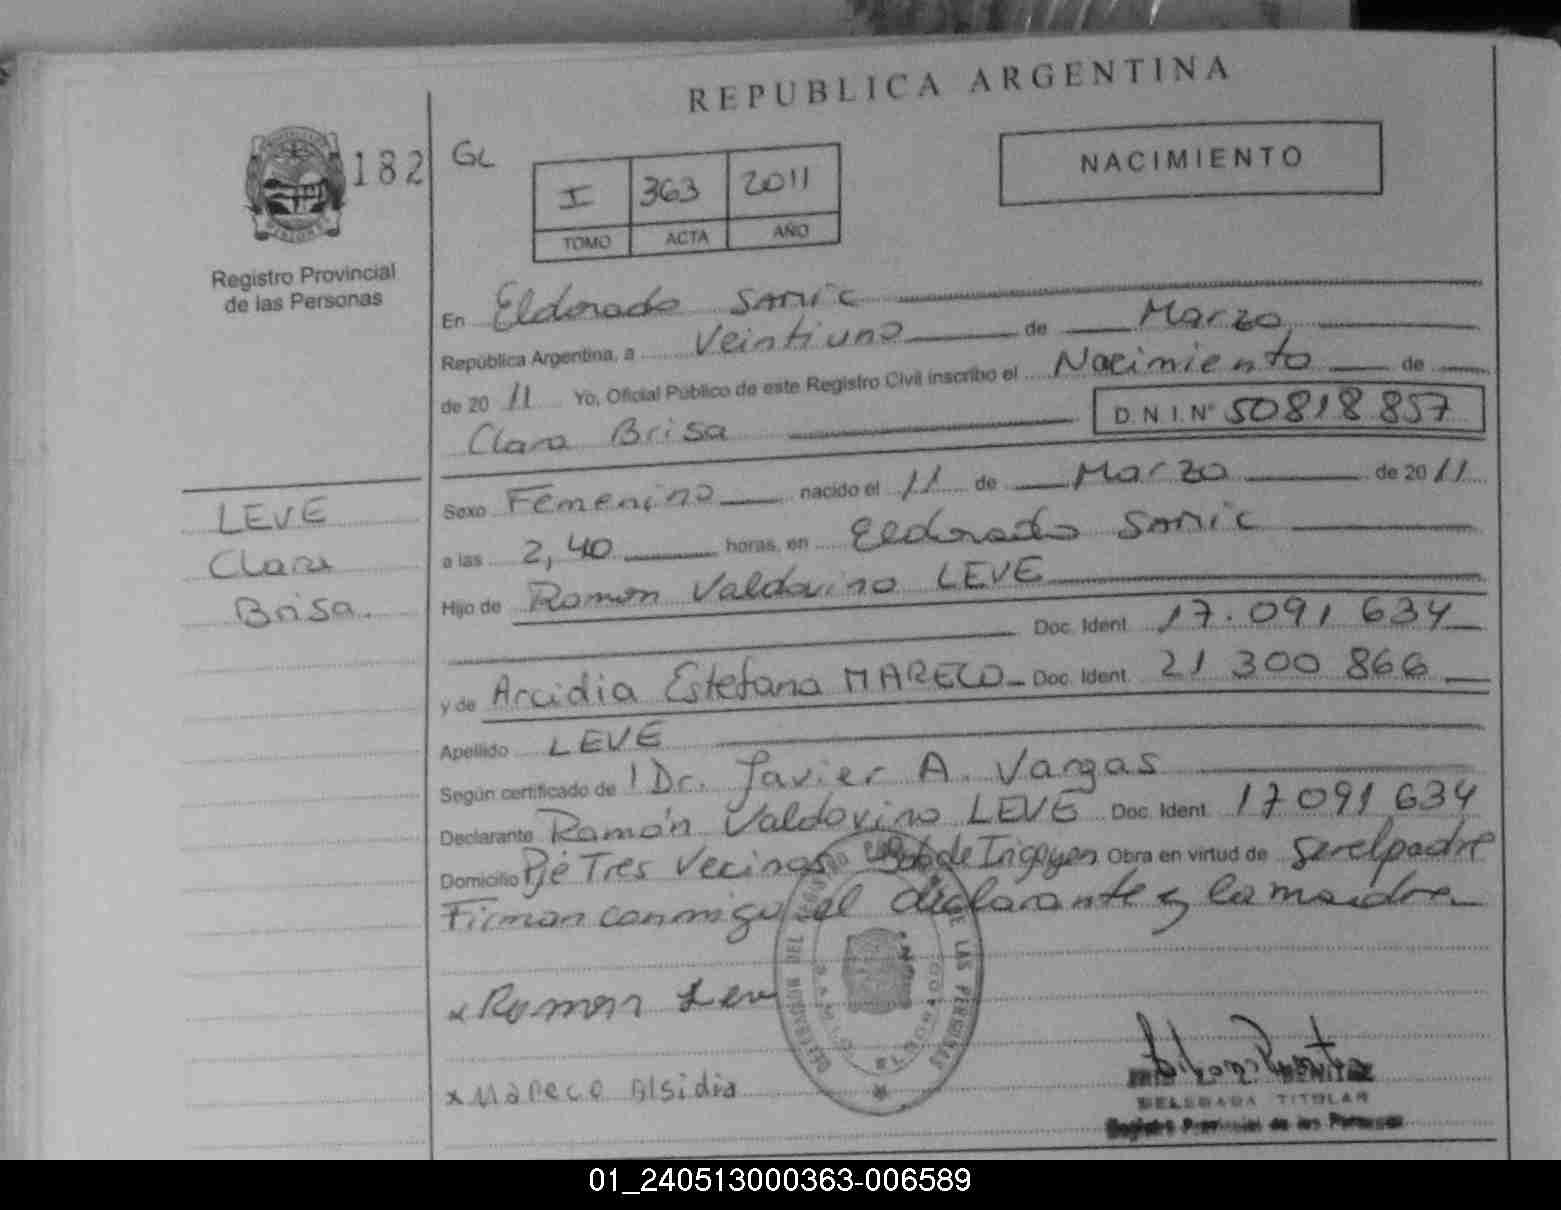 REPUBLICA ARGENTINA
182
GL
I 363 2011
TOMO ACTA AÑO
NACIMIENTO
Registro Provincial
de las Personas
En Eldorado SAMIC
República Argentina, a Veintiuno de Marzo
de 20 11 Yo, Oficial Público de este Registro Civil inscribo el Nacimiento de
Clara Brisa D.N.I.Nº 50818857
LEVE
Clara
Brisa.
Sexo Femenino nacido el 11 de Marzo de 20 11
a las 2,40 horas, en Eldorado SAMIC
Hijo de Ramon Valdovino LEVE
Doc. Ident. 17.091 634
y de Arcidia Estefana MARECO Doc. Ident. 21 300 866
Apellido LEVE
Según certificado de l Dr. Javier A. Vargas
Declarante Ramón Valdovino LEVE Doc. Ident. 17091634
Domicilio Pje Tres Vecinos de Irigoyen Obra en virtud de ser el padre
Firman conmigo el declarante y la madre
x Ramon Leve
x Mareco Alsidia
DELEGADA TITULAR
Registro Provincial de las Personas
01_240513000363-006589